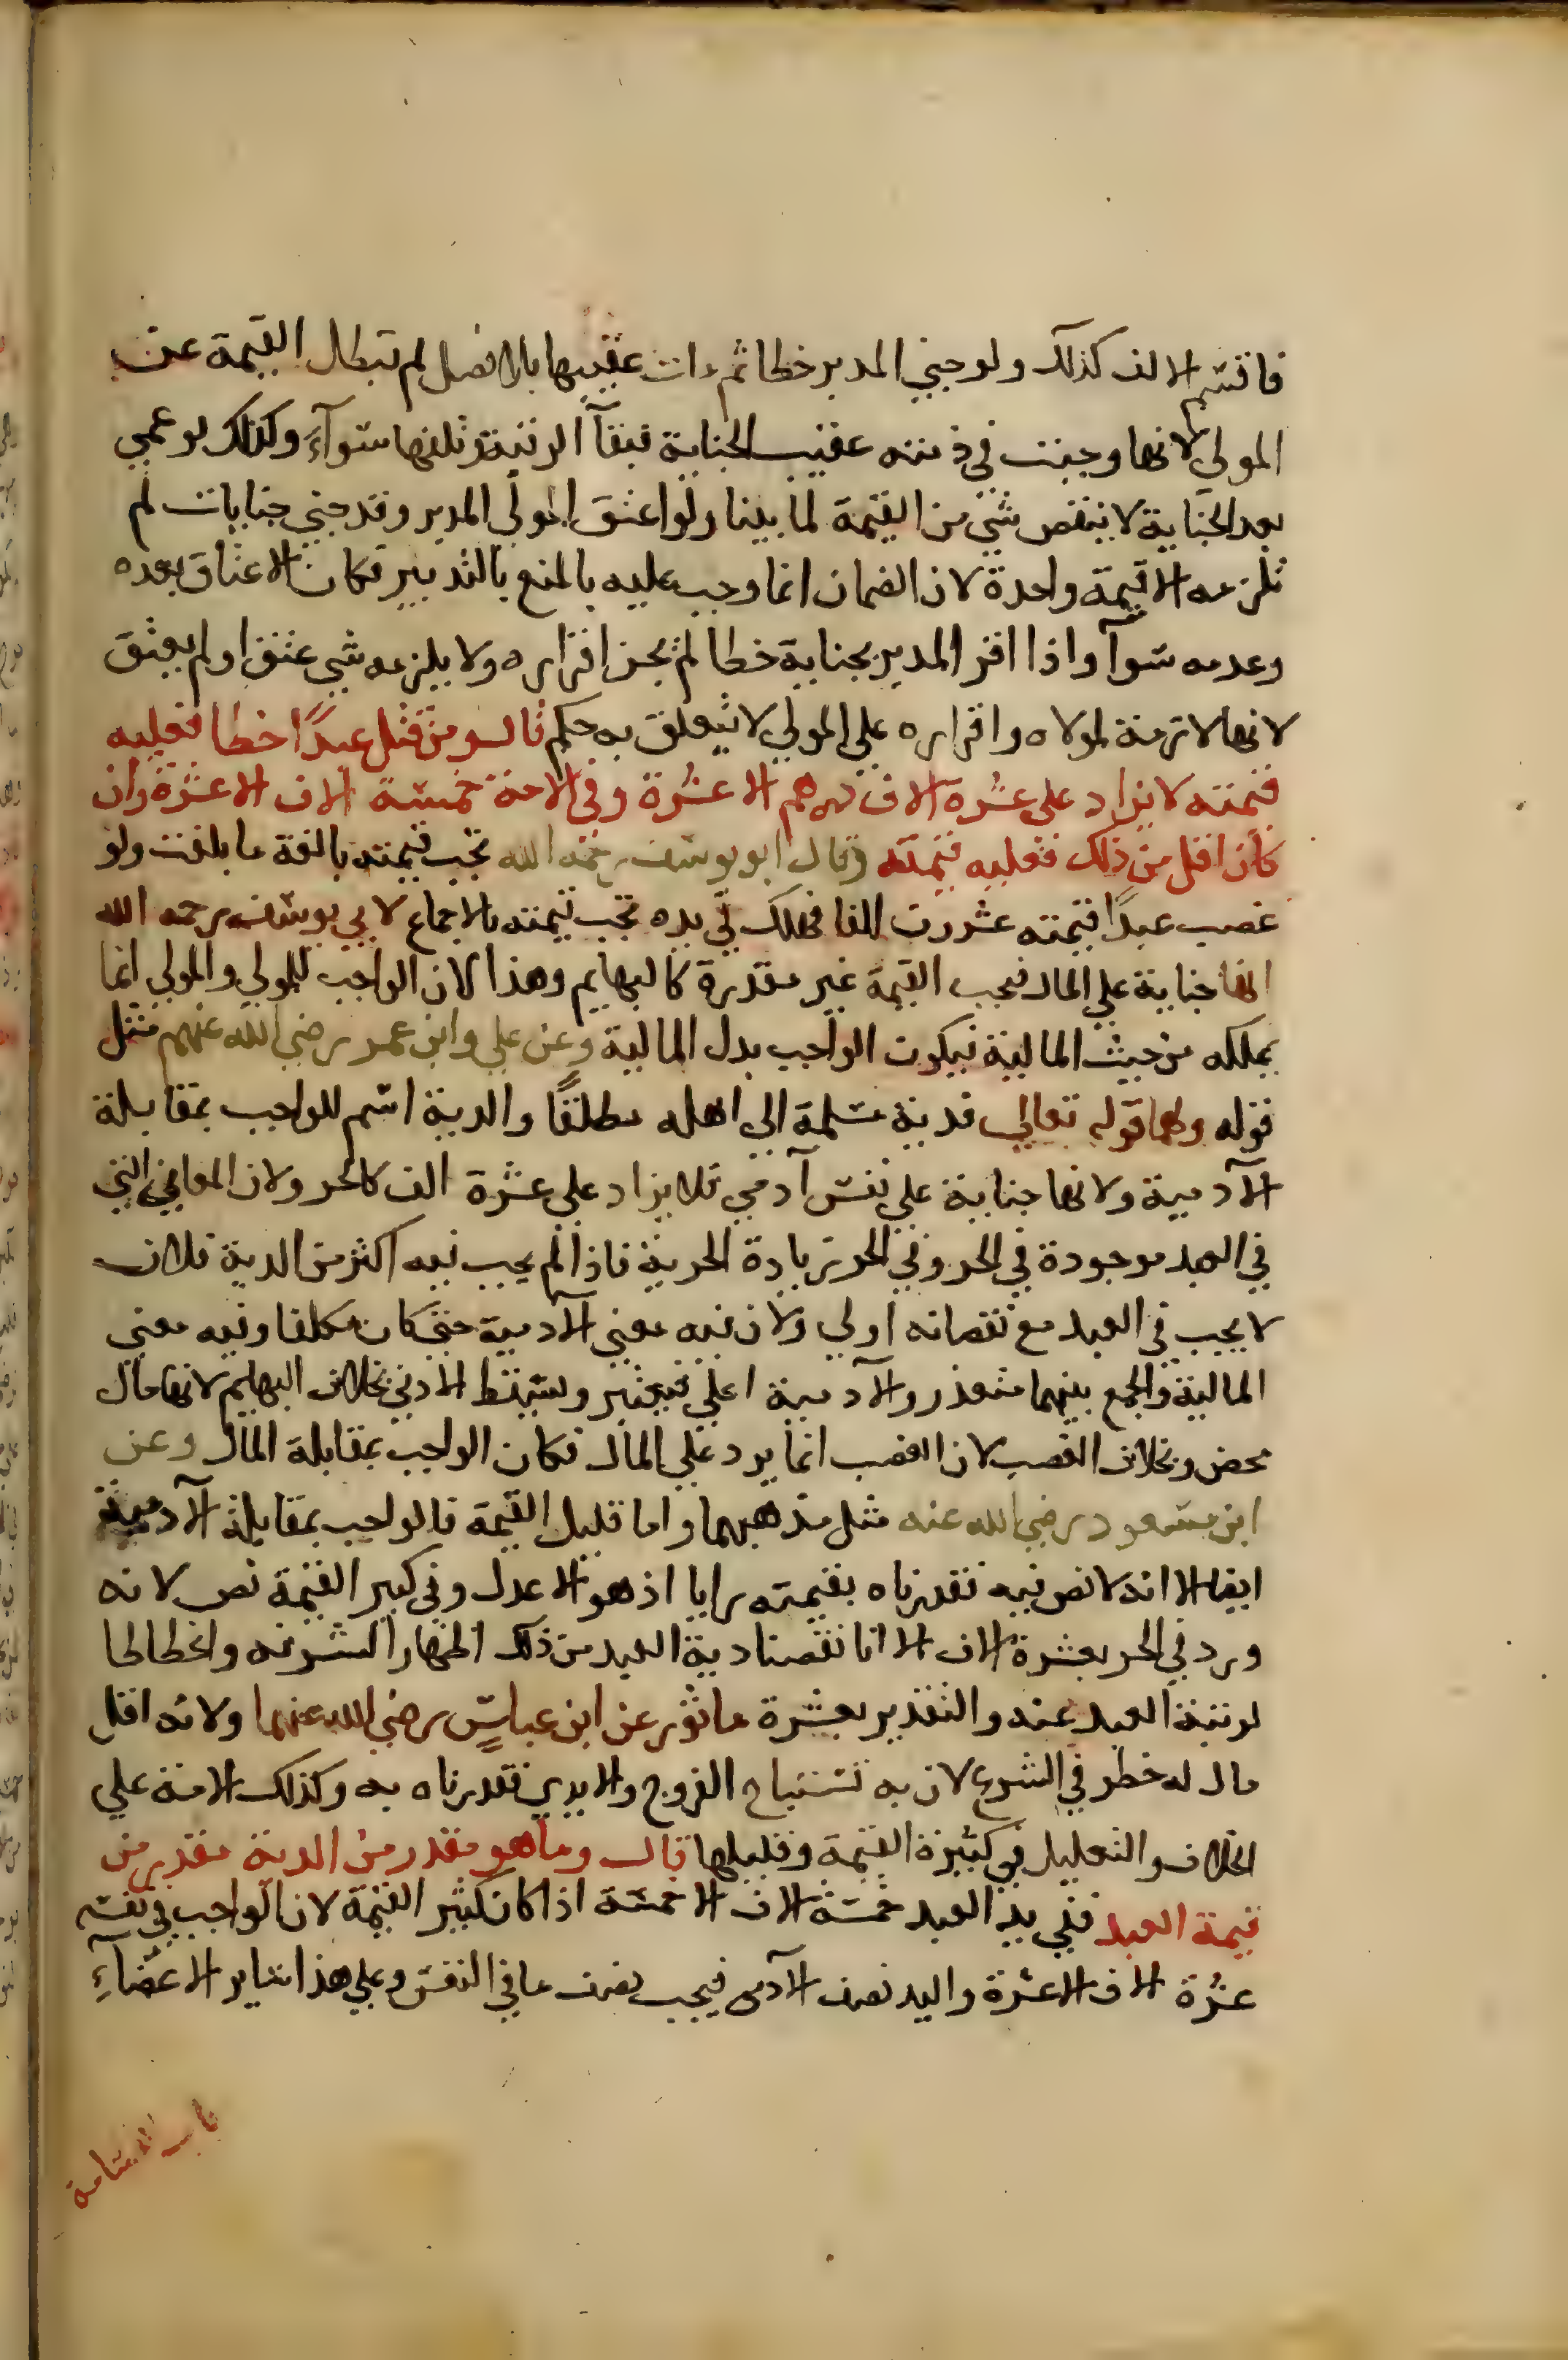 فاقتسم الالف كذلك ولو جني المدبر خطا ثم مات عقيبها بلا فصل لم تبطل القيمة عن
المولي لانها وجبت في ذمته عقيب الجناية فبقآ الرقبة وتلفها سوآء وكذلك لو عمي
بعد الجناية لا ينقص شي من القيمة لما بينا ولو اعتق المولي المدبر وقد جني جنايات لم
تلزمه الا قيمة واحدة لان الضمان انما وجب عليه بالمنع بالتدبير فكان الاعتاق بعده
وعدمه سوآ واذا اقر المدبر بجناية خطا لم يجز اقراره ولا يلزمه شي عتق او لم يعتق
لانها لازمة لمولاه واقراره علي المولي لا يتعلق به حكم قال ومن قتل عبدًا خطا فعليه
قيمته لا يزاد على عشره الاف درهم الا عشرة وفي الامة خمسة الاف الا عشرة وان
كان اقل من ذلك فعليه قيمته وقال ابو يوسف رحمه الله تجب قيمته بالغة ما بلغت ولو
غصب عبدًا قيمته عشرون الفا فهلك في يده تجب قيمته بالاجماع لابي يوسف رحمه الله
انها جناية علي المال فتجب القيمة غير مقدرة كالبهايم وهذا لان الواجب للمولي والمولي انما
يملكه من حيث المالية فيكون الواجب بدل المالية وعن علي وابن عمر رضي الله عنهم مثل
قوله ولهما قوله تعالي فدية مسلمة الي اهله مطلقًا والدية اسم للواجب بمقابلة
الآدمية ولانها جناية علي نفس آدمي فلا يزاد علي عشرة الف كالحر ولان المعاني التي
في العبد موجودة في الحر وفي الحر زيادة الحرية فاذا لم يجب فيه اكثر من الدية فلان
لا يجب في العبد مع نقصانه اولي ولان فيه معني الآدمية حتي كان مكلفا وفيه معني
المالية والجمع بينهما متعذر والآدمية اعلي فيعتبر ويسقط الادني بخلاف البهايم لانها مال
محض وبخلاف الغصب لان الغصب انما يرد علي المال فكان الواجب بمقابلة المال وعن
ابن مسعود رضي الله عنه مثل مذهبهما واما قليل القيمة فالواجب بمقابلة الآدمية
ايضا الا انه لا نص فيه فقدرناه بقيمته رايا اذ هو الاعدل وفي كبير القيمة نص لانه
ورد في الحر بعشرة الاف الا انا نقصنا دية العبد من ذلك اظهارا لشرفه وانحطاطا
لرتبة العبد عنه والتقدير بعشرة ماثور عن ابن عباسٍ رضي الله عنهما ولانه اقل
مال له خطر في الشرع لان به تستباح الفروج والايدي فقدرناه به وكذلك الامة علي
الخلاف والتعليل في كثيرة القيمة وقليلها قال وما هو مقدر من الدية مقدر من
قيمة العبد ففي يد العبد خمسة الاف الا خمسة اذا كان كثير القيمة لان الواجب في نفسه
عشرة الاف الا عشرة واليد نصف الآدمي فيجب نصف ما في النفس وعلي هذا ساير الاعضآءِ
باب القسامة